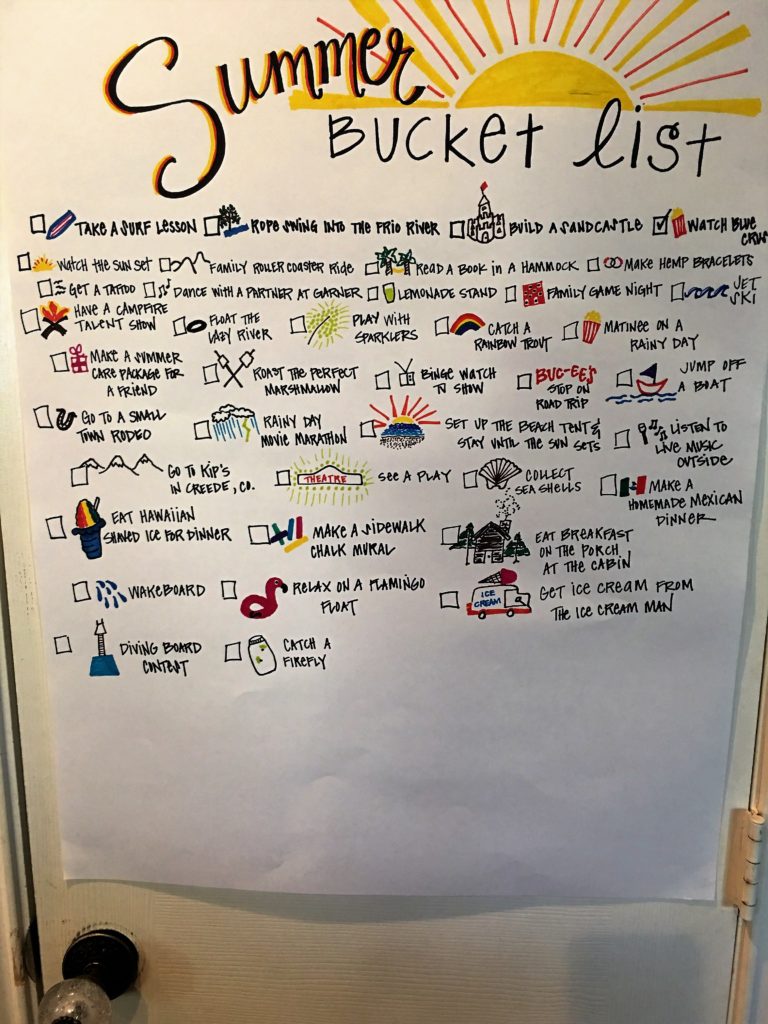 Summer
BUCKET list
TAKE A SURF LESSON ROPE SWING INTO THE FRIO RIVER BUILD A SANDCASTLE WATCH BLUE
CRUSH
WATCH THE SUN SET FAMILY ROLLER COASTER RIDE READ A BOOK IN A HAMMOCK MAKE HEMP BRACELETS
GET A TATTOO DANCE WITH A PARTNER AT GARNER LEMONADE STAND FAMILY GAME NIGHT JET
SKI
HAVE A CAMPFIRE
TALENT SHOW
FLOAT THE
LAZY RIVER
PLAY WITH
SPARKLERS
CATCH A
RAINBOW TROUT
MATINEE ON A
RAINY DAY
MAKE A SUMMER
CARE PACKAGE FOR
A FRIEND
ROAST THE PERFECT
MARSHMALLOW
BINGE WATCH
TV SHOW
BUC-EE'S
STOP ON
ROAD TRIP
JUMP OFF
A BOAT
GO TO A SMALL
TOWN RODEO
RAINY DAY
MOVIE MARATHON
SET UP THE BEACH TENT &
STAY UNTIL THE SUN SETS
LISTEN TO
LIVE MUSIC
OUTSIDE
GO TO KIP'S
IN CREEDE, CO.
THEATRE
SEE A PLAY
COLLECT
SEA SHELLS
MAKE A
HOMEMADE MEXICAN
DINNER
EAT HAWAIIAN
SHAVED ICE FOR DINNER
MAKE A SIDEWALK
CHALK MURAL
EAT BREAKFAST
ON THE PORCH
AT THE CABIN
WAKEBOARD
RELAX ON A FLAMINGO
FLOAT
ICE
CREAM
GET ICE CREAM FROM
THE ICE CREAM MAN
DIVING BOARD
CONTEST
CATCH A
FIREFLY